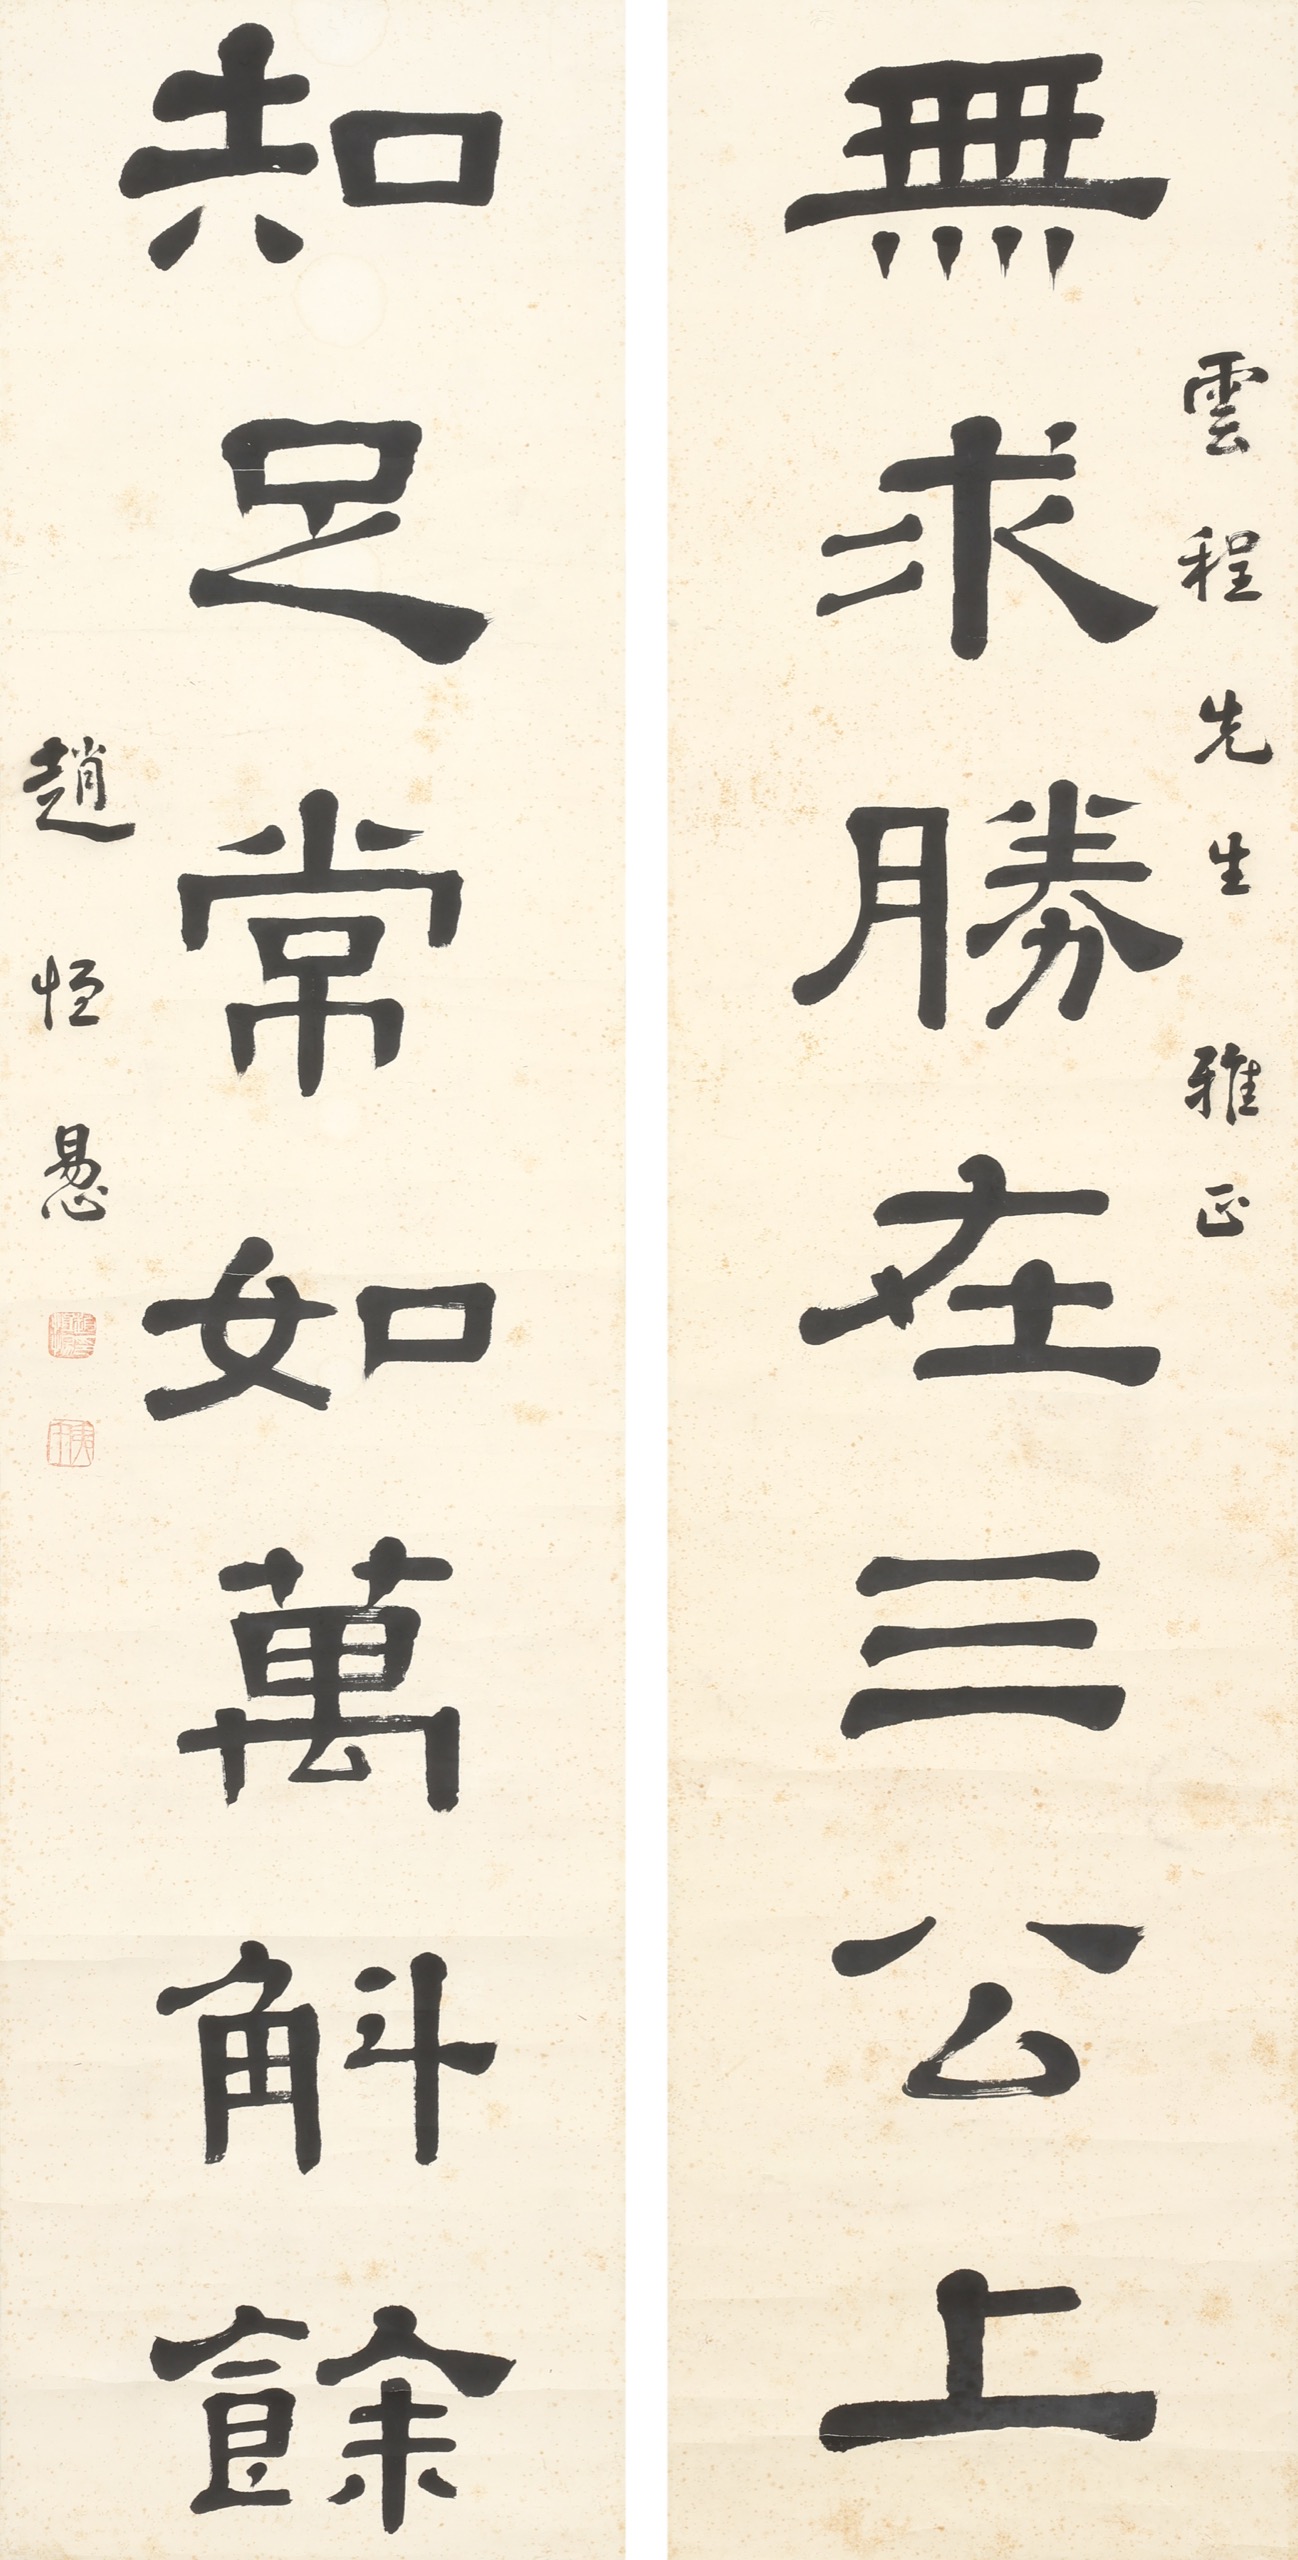 雲程先生雅正
無求勝在三公上
知足常如萬斛餘
趙恒惕